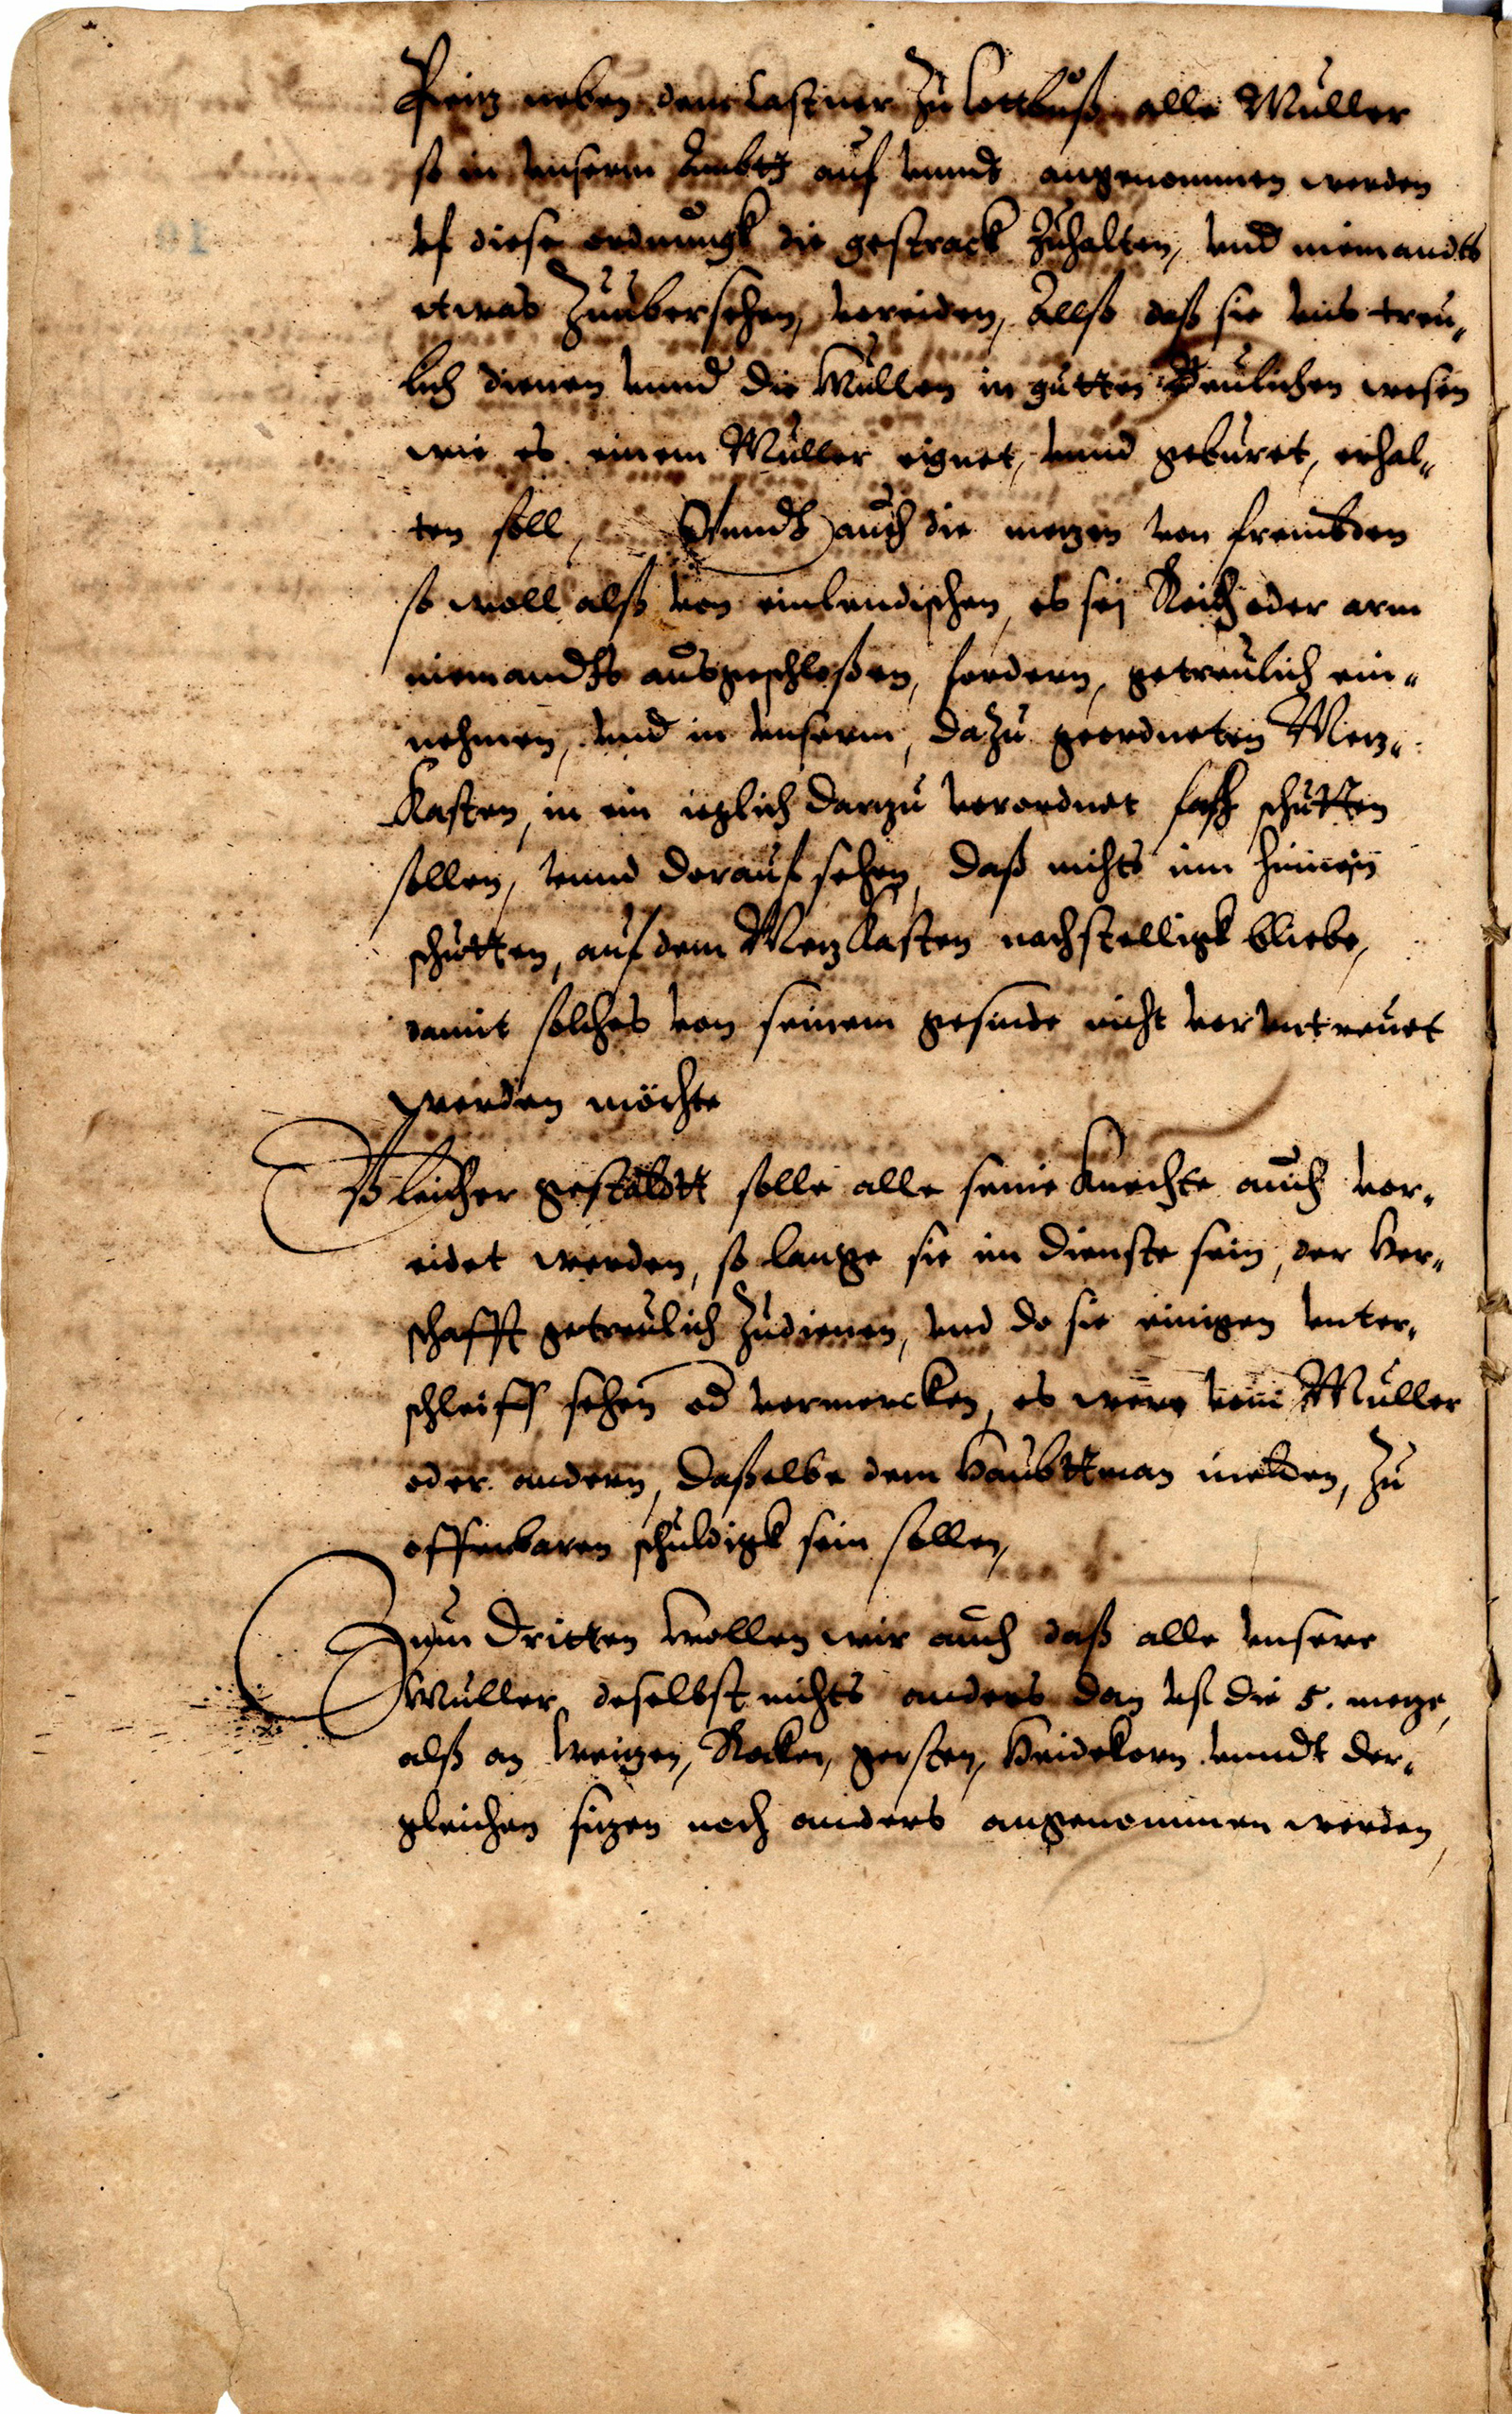 Peitz neben dem Castner zu Cottbuß alle Muller
so in unserm Ambtt auf unnd angenommen werden
uf diese ordnungk die gestrack zuhalten, und niemandts
etwas zuubersehen, voreiden, Allß daß sie uns treu„
lich dienen unnd die Mullen in gutten Beulichen wesen
wie es einem Muller eignet, unnd geburet, erhal„
ten soll, Unndt auch die metzen von frembden
so woll alß von einlendischen, es sej Reich oder arm
niemandts ausgeschloßen, fordern, getreulich ein„
nehmen, und in unserm, dazu geordneten Metz„
Kasten, in ein jeglich darzu verordnet fach schutten
sollen, unnd darauf sehen, daß nichts im hinnein
schutten, auf dem Metz Kasten nachstelligk bliebe,
damit solches von seinem gesinde nicht veruntreuet
werden möchte
Gleicher gestaldtt solle alle seine Knechte auch vor„
eidet werden, so lange sie im dienste sein, der Her„
schafft getreulich zudienen, und do sie einigen unter„
schleiff sehen od vermercken, es were vom Muller
oder andern, daßelbe dem Haubttman melden, zu
offenbaren schuldigk sein sollen,
Zum Dritten wollen wir auch daß alle unsere
Muller, deselbst nichts anders dan uf die 5. metze,
alß an Weitzen, Rocken, gersten, Heidekorn unndt der„
gleichen sitzen noch anders angenommen werden,